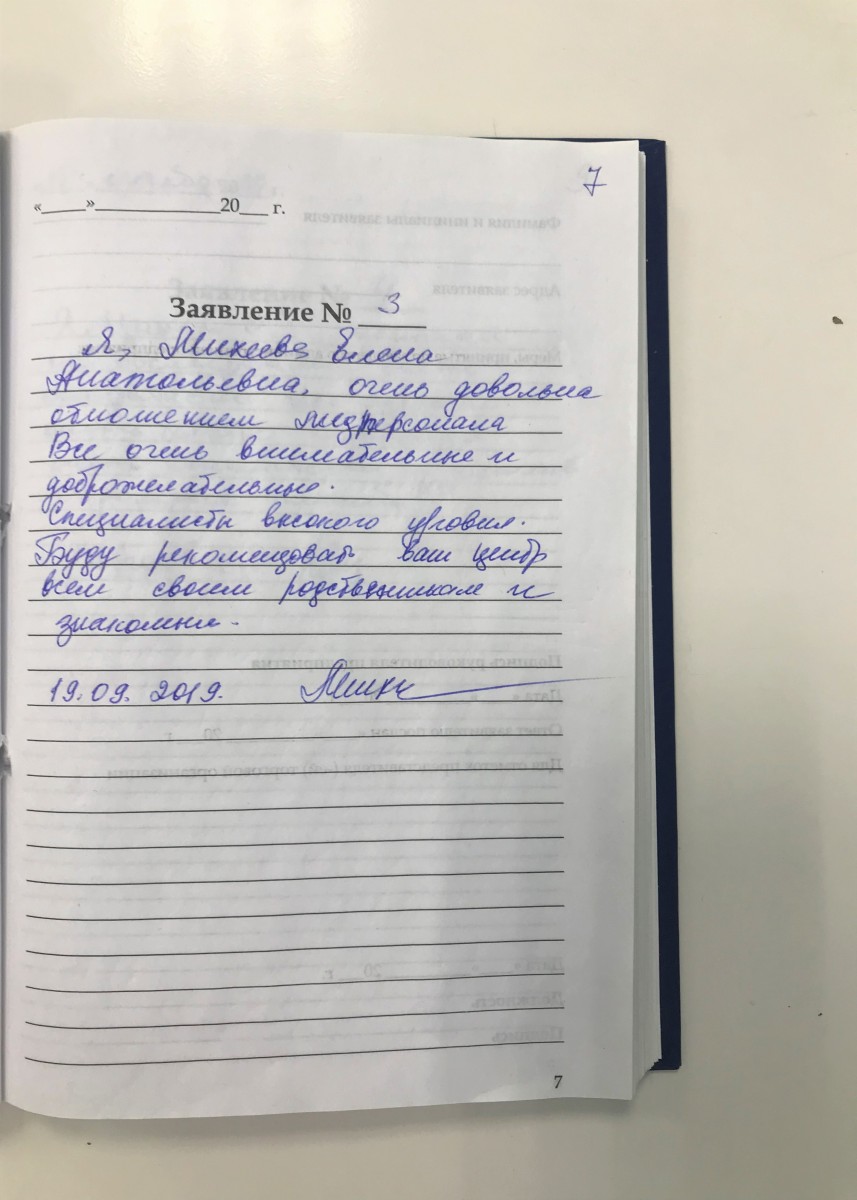 7
«____»______________20___ г.
Заявление № 3
Я, Михеева Елена
Анатольевна, очень довольна
отношением медперсонала
Все очень внимательные и
доброжелательные.
Специалисты высокого уровня.
Буду рекомендовать ваш центр
всем своим родственникам и
знакомым.
19.09.2019.
7